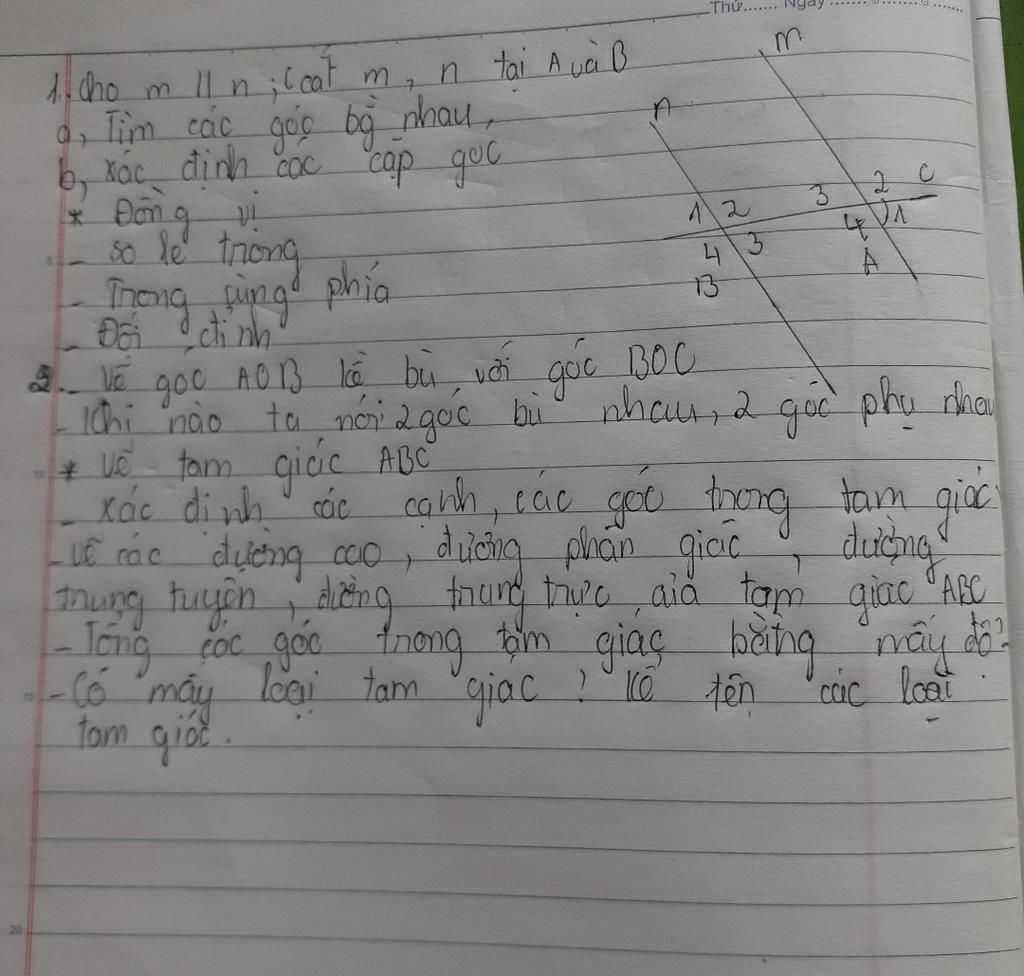 Thứ....... Ngày
1. Cho m || n ; C cắt m, n tại A và B
a, Tìm các góc bằ nhau,
b, xác định các cặp góc
* Đồng vị
- so le trong
- Trong cùng phía
- Đối đỉnh
m
n
1 2 3 2 C
4 3 4 1
B A
2 - Vẽ góc AOB kề bù với góc BOC
- Khi nào ta nói 2 góc bù nhau, 2 góc phụ nhau
* Vẽ tam giác ABC
- xác định các cạnh, các góc trong tam giác
- vẽ các đường cao, đường phân giác, đường
trung tuyến, đường trung trực, của tam giác ABC
- Tổng các góc trong tam giác bằng mấy độ?
- Có mấy loại tam giac ? Kể tên các loại
tam giác.
5
10
15
20